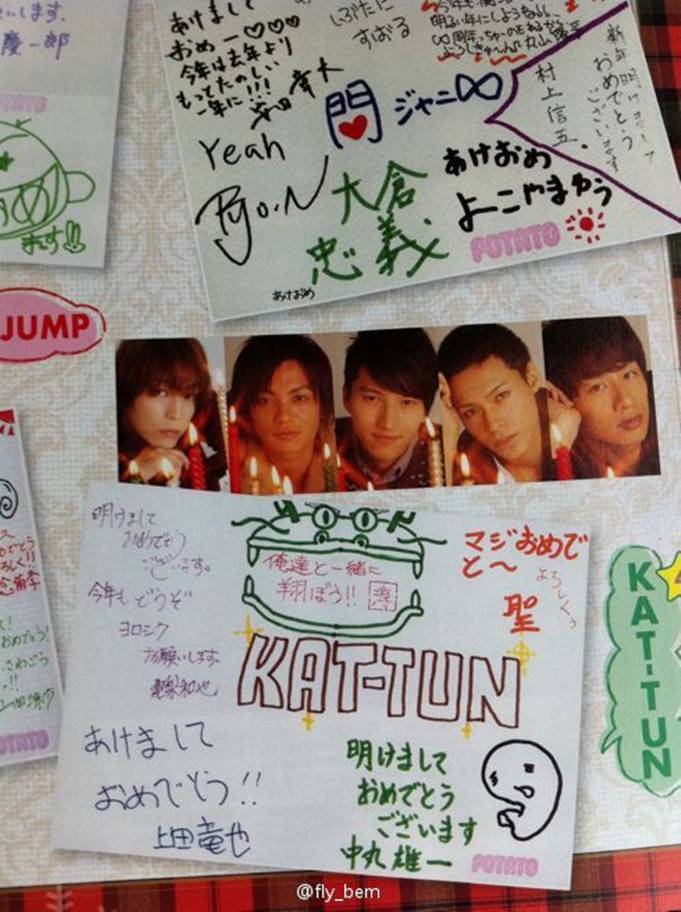 慶一郎
POTATO
ます!!
あけまして
おめー♡♡♡
今年は去年より
もっとたのしい
一年に!!!
Yeah
しぶたに
すばる
関
ジャニ∞
新年明けまして
おめでとう
ございます
村上信五
大倉
忠義
あけおめ
よこやまゆう
POTATO
あけおめ
JUMP
明けまして
おめでとう
ございます。
今年もどうぞ
ヨロシク
お願いします
亀梨和也
俺達と一緒に
翔ぼう!!
マジおめで
と〜
よろしくっ
聖
KAT-TUN
あけまして
おめでとう!!
上田竜也
明けまして
おめでとう
ございます
中丸雄一
POTATO
KAT-TUN
POTATO
@fly_bem